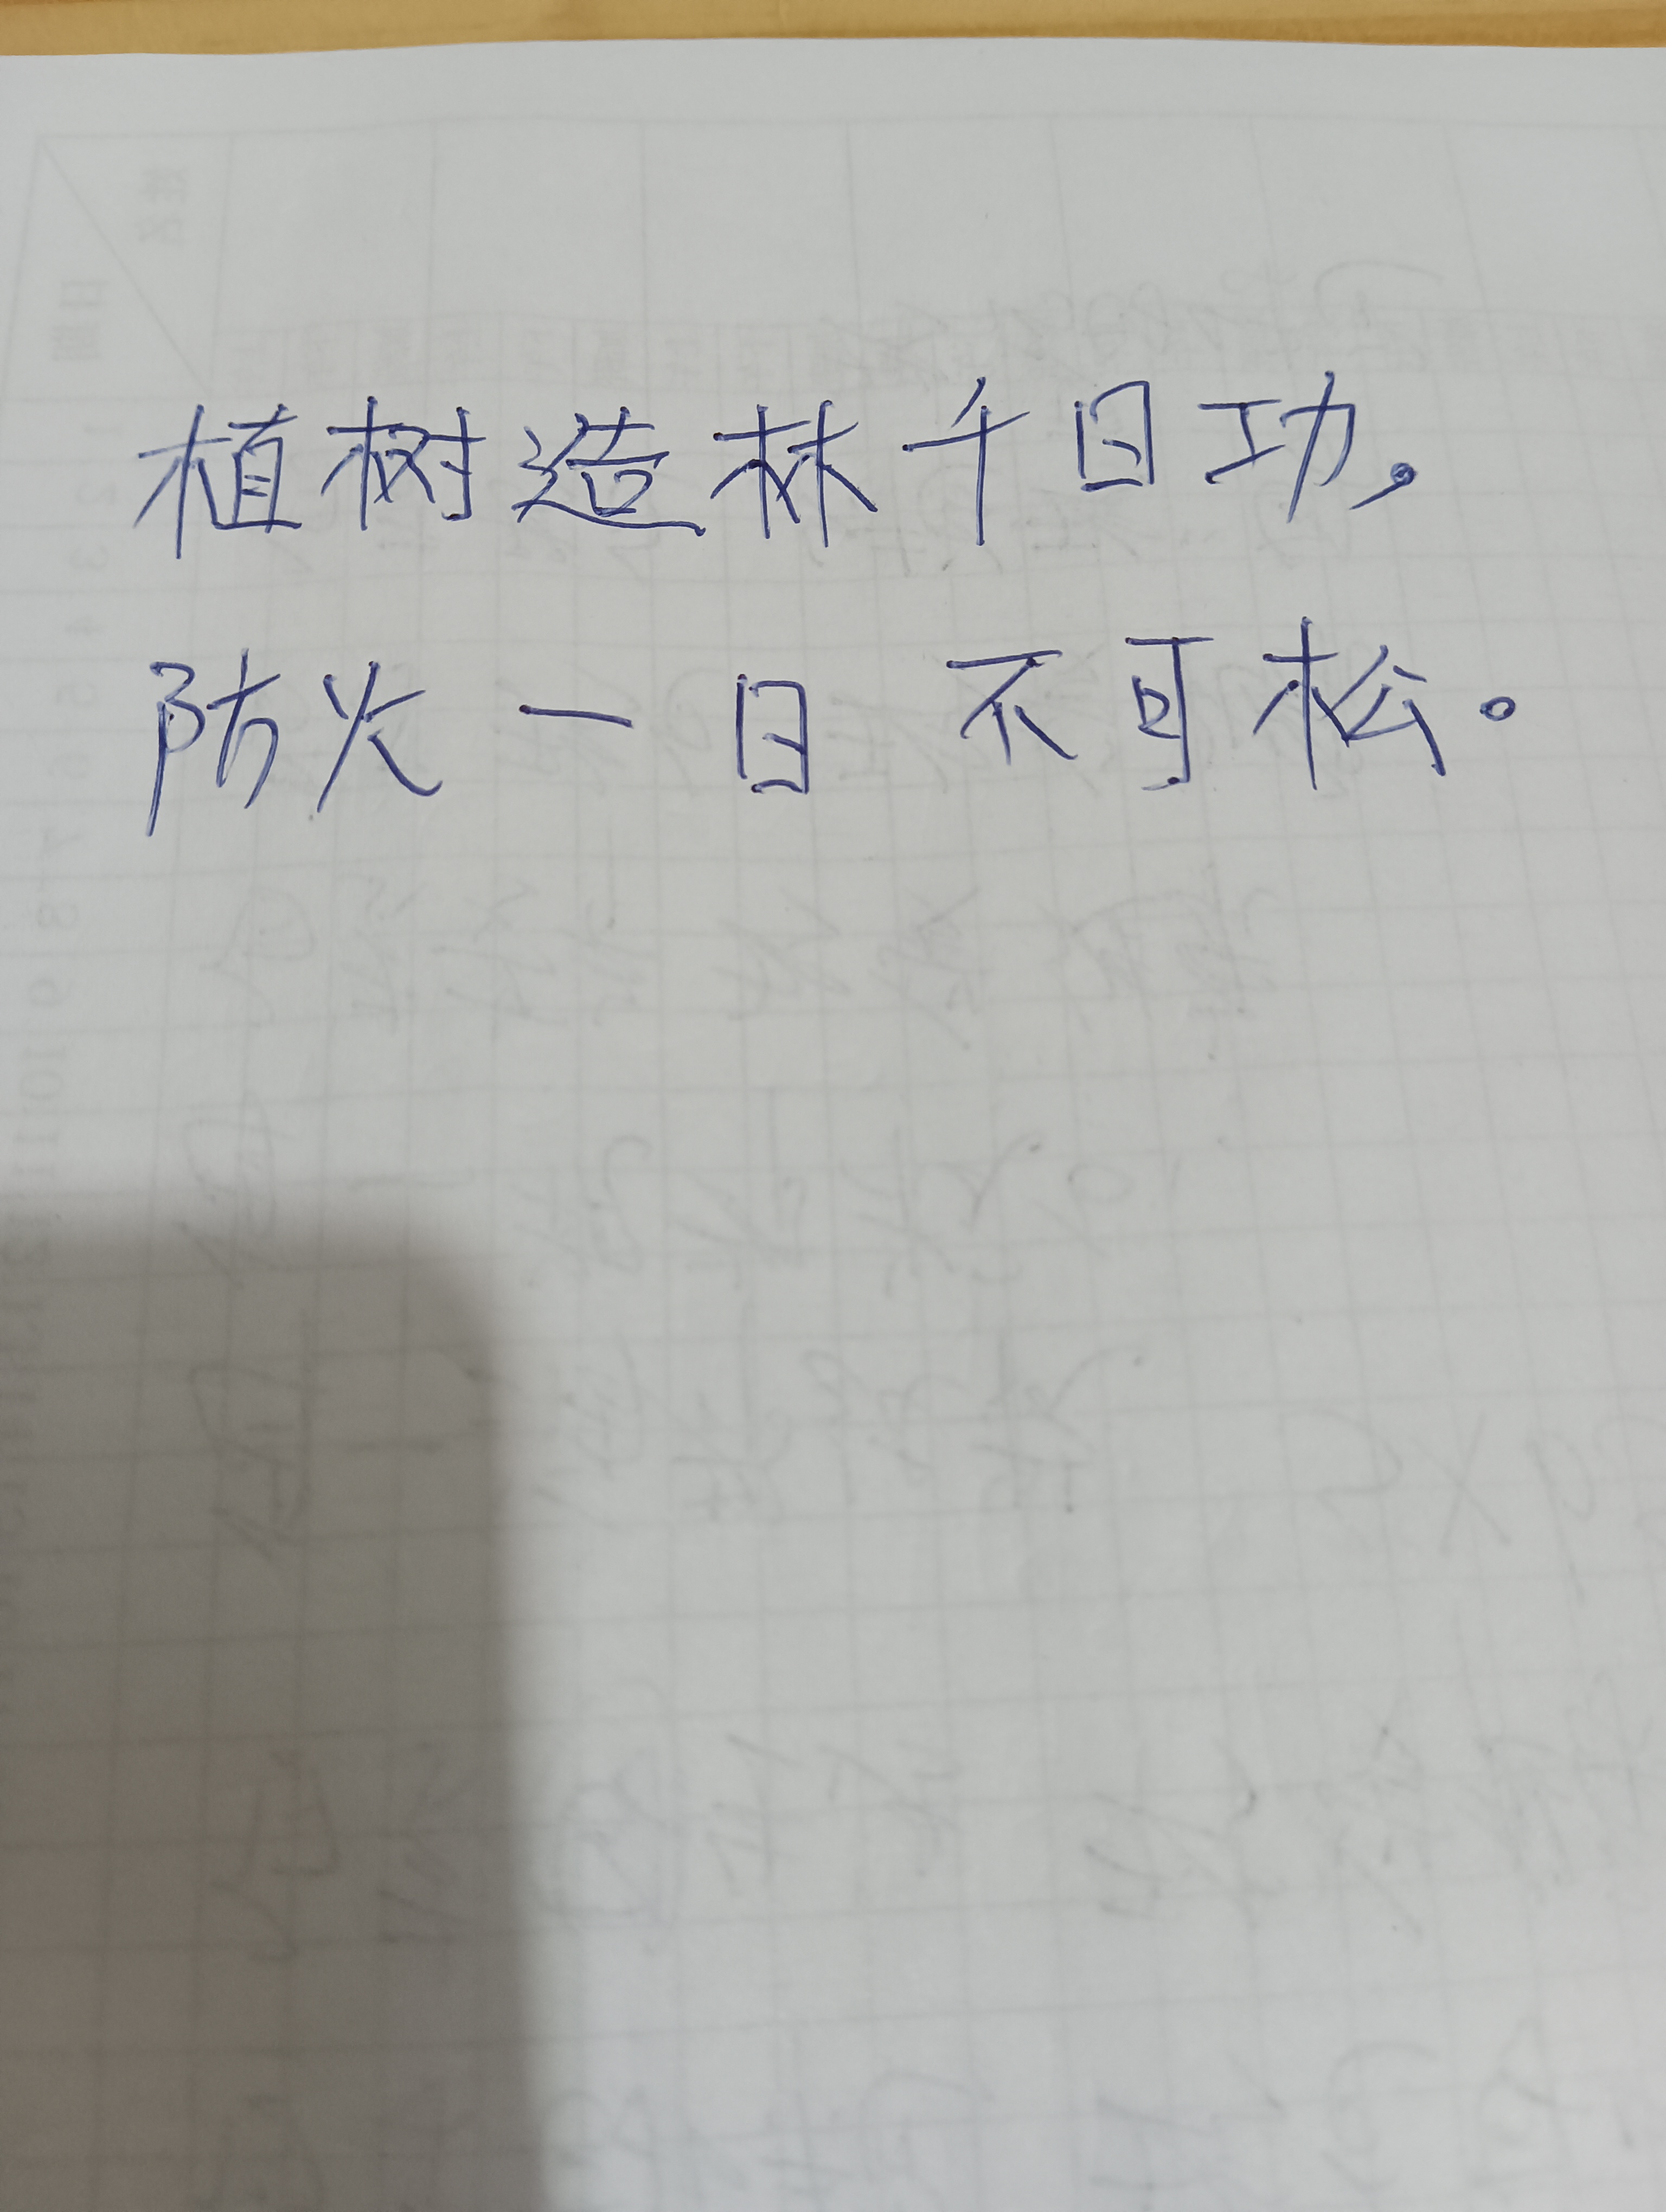 植树造林千日功，
防火一日不可松。